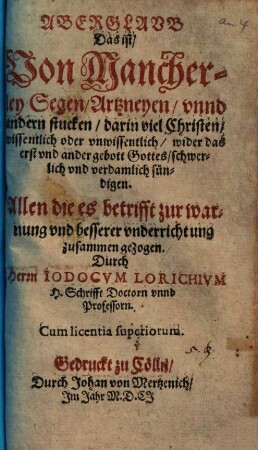 ABERGLAVB
Das ist/
Von Mancher-
ley Segen/ Artzneyen/ vnnd
andern stucken/ darin viel Christen/
wissentlich oder vnwissentlich/ wider das
erst vnd ander gebott Gottes/ schwer-
lich vnd verdamlich sün-
digen.
Allen die es betrifft zur war-
nung vnd besserer vnderrichtung
zusammen gezogen.
Durch
Herrn IODOCVM LORICHIVM
H. Schrifft Doctorn vnnd
Professorn.
Cum licentia superiorum.
Gedruckt zu Cölln/
Durch Johan von Mertzenich/
Im Jahr M.D.CI